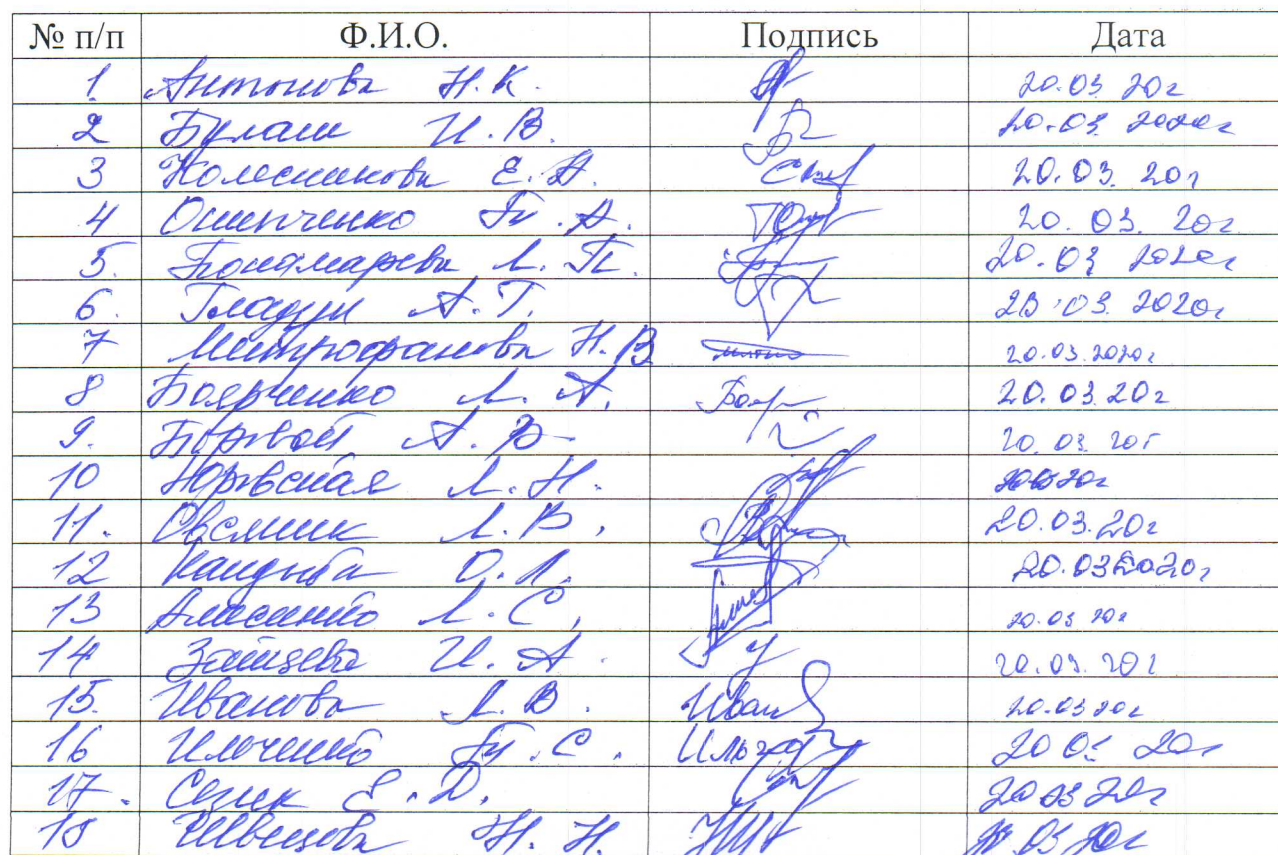 № п/п Ф.И.О. Подпись Дата
1. Антонова Н.К. 20.03 20г
2 Булаш И.В. 20.03 2020г
3 Колесникова Е.А. 20.03.20г
4 Осипченко Т.А. 20.03.20г.
5. Пономарева Л.П. 20.03 2020г
6. Гладун А.Г. 20.03.2020г
7 Митрофанова Н.В 20.03.2020г
8 Боярченко Л.А. Бояр 20.03.20г
9. Боровой А.В. 20.03.20г
10 Юровская Л.Н.
11. Овсянник Л.В. 20.03.20г
12 Кандыба О.Л. 20.03 2020г
13 Л.С. 20.03 20г
14 Зайцева И.А. 20.03.20г
15. Иванова Л.В. Иван 20.03 20г
16 Ильченко С. 20 03 20г
17. Е.Д. 20 03 20г
18 Швецова Н.Н. 03 20г